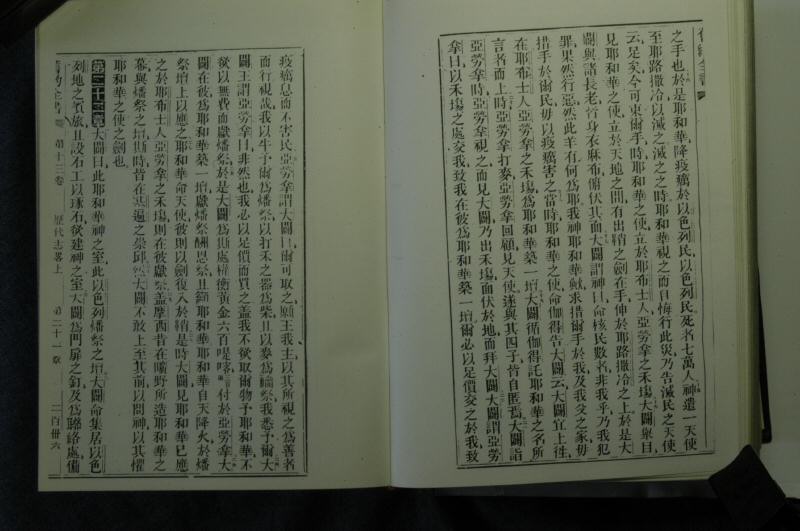 舊約全書
之手也於是耶和華降疫癘於以色列民以色列民死者七萬人神遣一天使
至耶路撒冷以滅之滅之之時耶和華視之而自悔行此災乃告滅民之天使
云足矣今可束爾手時耶和華之使立於耶布士人亞勞拿之禾塲大闢舉目
見耶和華之使立於天地之間有出鞘之劍在手伸於耶路撒冷之上於是大
闢與諸長老皆身衣麻布俯伏其面大闢謂神曰命核民數者非我乎乃我犯
罪果然行惡然此羊有何為耶我神耶和華歟求措爾手於我及我父之家毋
措手於爾民毋以疫癘害之當時耶和華之使命伽得告大闢云大闢宜上往
在耶布士人亞勞拿之禾塲為耶和華築一壇大闢循伽得託耶和華之名所
言者而上時亞勞拿打麥亞勞拿回顧見天使遂與其四子皆自匿焉大闢詣
亞勞拿時亞勞拿視之而見大闢乃出禾塲面伏於地而拜大闢大闢謂亞勞
拿曰以禾塲之處交我致我在彼為耶和華築一壇爾必以足價交之於我致
疫癘息而不害民亞勞拿謂大闢曰爾可取之願王我主以其所視之為善者
而行視哉我以牛子爾為燔祭以打禾之器為柴且以麥為餽祭我悉予爾大
闢王謂亞勞拿曰非然也我必以足價而買之蓋我不欲取爾物予耶和華不
欲以無費而獻燔祭於是大闢為斯處權衡黃金六百 付於亞勞拿大
闢在彼為耶和華築一壇獻燔祭酬恩祭且籲耶和華耶和華自天降火於燔
祭壇上以應之耶和華命天使彼則以劍復入於鞘是時大闢見耶和華已應
之於耶布士人亞勞拿之禾塲則在彼獻祭蓋摩西昔在曠野所造耶和華之
幕與燔祭之壇斯時皆在 遍之崇邱然大闢不敢上至其前以問神以其懼
耶和華之使之劍也
第二十二章大闢曰此耶和華神之室此以色列燔祭之壇大闢命集居以色
列地之賓旅且設石工以琢石後建神之室大闢為門扉之釘及為聯絡處備
第十三卷 歷代志畧上 第二十一章 二百卅六